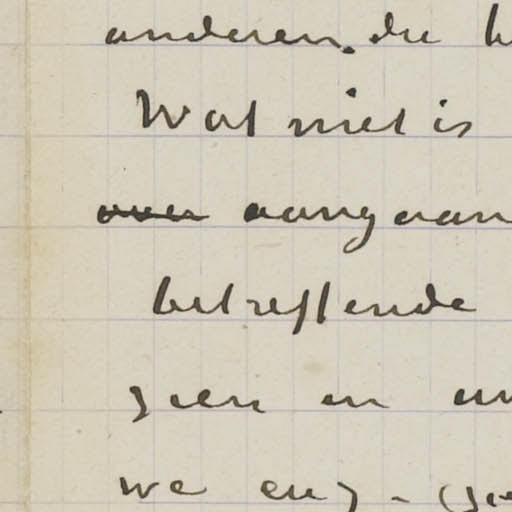 anderen. die
Wat niet is
over aangaan
betreffende
zien en
we enz. - (